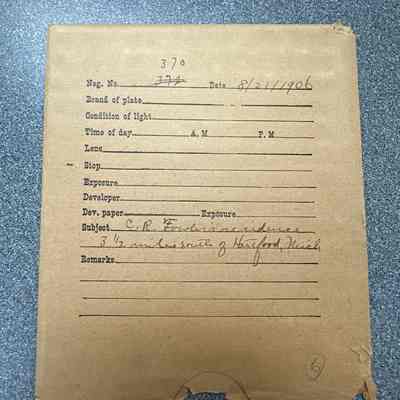 370
Neg. No. 371 Date 8/21/1906
Brand of plate
Condition of light
Time of day A. M P. M
Lens
Stop
Exposure
Developer
Dev. paper Exposure
Subject C. R. residence
3 1/2 miles south of Hartford, Mich
Remarks
5